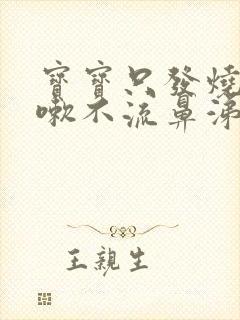 寶寶只發燒
嗽不流鼻涕
王親生